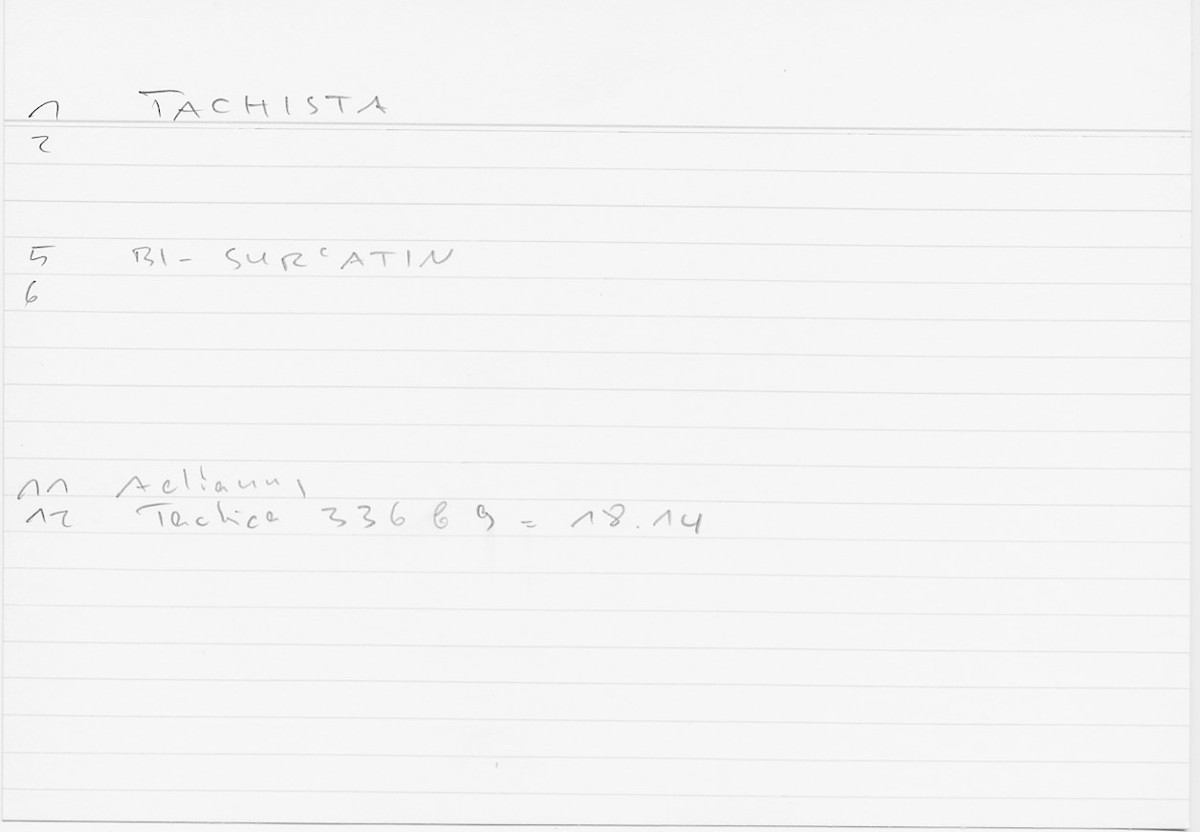 1 TACHISTA
2
5 BI- SURCATIN
6
11 Aelianus
12 Tactica 336 69 = 18.14